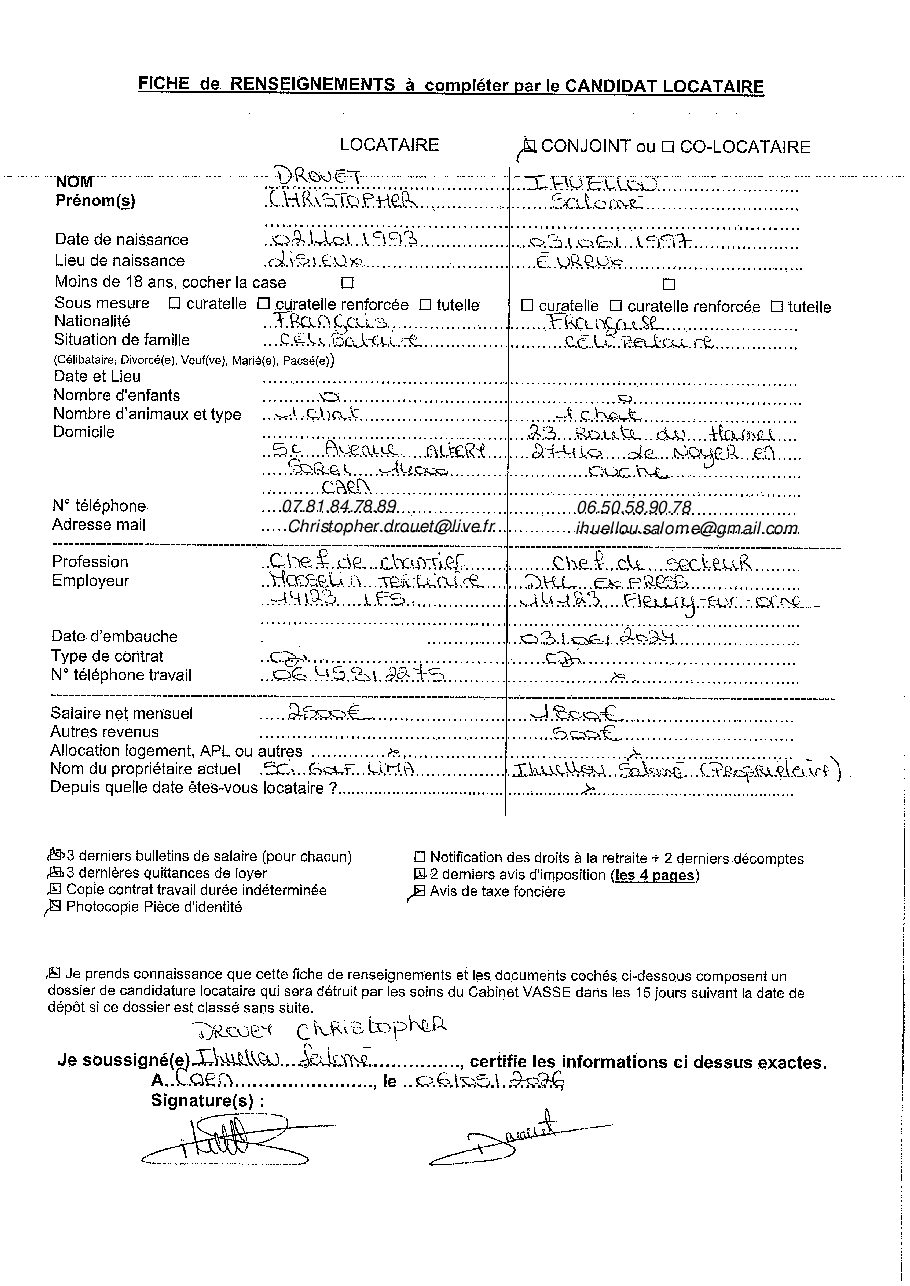 FICHE de RENSEIGNEMENTS à compléter par le CANDIDAT LOCATAIRE
LOCATAIRE ☒ CONJOINT ou ☐ CO-LOCATAIRE
NOM DROUET IHUELLOU
Prénom(s) CHRISTOPHER Salomé
Date de naissance 1993 03/06/1997
Lieu de naissance LISIEUX EVREUX
Moins de 18 ans, cocher la case ☐ ☐
Sous mesure ☐ curatelle ☐ curatelle renforcée ☐ tutelle ☐ curatelle ☐ curatelle renforcée ☐ tutelle
Nationalité Français Française
Situation de famille Célibataire Célibataire
(Célibataire, Divorcé(e), Veuf(ve), Marié(e), Pacsé(e))
Date et Lieu
Nombre d'enfants 0 0
Nombre d'animaux et type 1 chat 1 chat
Domicile 23 Route du Hamel
Avenue ALBERT 27410 de NOYER en
SOREL OUCHE
CAEN
N° téléphone 07.81.84.78.89 06.50.58.90.78
Adresse mail Christopher.drouet@live.fr ihuellou.salome@gmail.com
Profession Chef de chantier Chef de secteur
Employeur DHL EXPRESS
14123 IFS 14123 Fleury-sur-orne
Date d'embauche 03/06/2024
Type de contrat CDI CDI
N° téléphone travail 06 45 81 22 75 x
Salaire net mensuel 2500€ 1800€
Autres revenus 500€
Allocation logement, APL ou autres x x
Nom du propriétaire actuel Ihuellou Salomé (Propriétaire)
Depuis quelle date êtes-vous locataire ? x
☒ 3 derniers bulletins de salaire (pour chacun) ☐ Notification des droits à la retraite + 2 derniers décomptes
☒ 3 dernières quittances de loyer ☒ 2 derniers avis d'imposition (les 4 pages)
☒ Copie contrat travail durée indéterminée ☒ Avis de taxe foncière
☒ Photocopie Pièce d'identité
☒ Je prends connaissance que cette fiche de renseignements et les documents cochés ci-dessous composent un
dossier de candidature locataire qui sera détruit par les soins du Cabinet VASSE dans les 15 jours suivant la date de
dépôt si ce dossier est classé sans suite.
DROUET Christopher
Je soussigné(e) Ihuellou Salomé, certifie les informations ci dessus exactes.
A CAEN, le 06/05/2026
Signature(s) :
Drouet